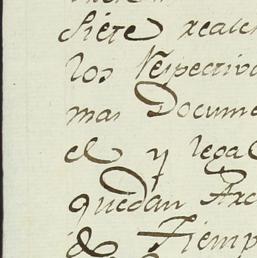 Siete reale
los Respectivo
mas Docume
el y legal
quedan Arc
de Tiemp